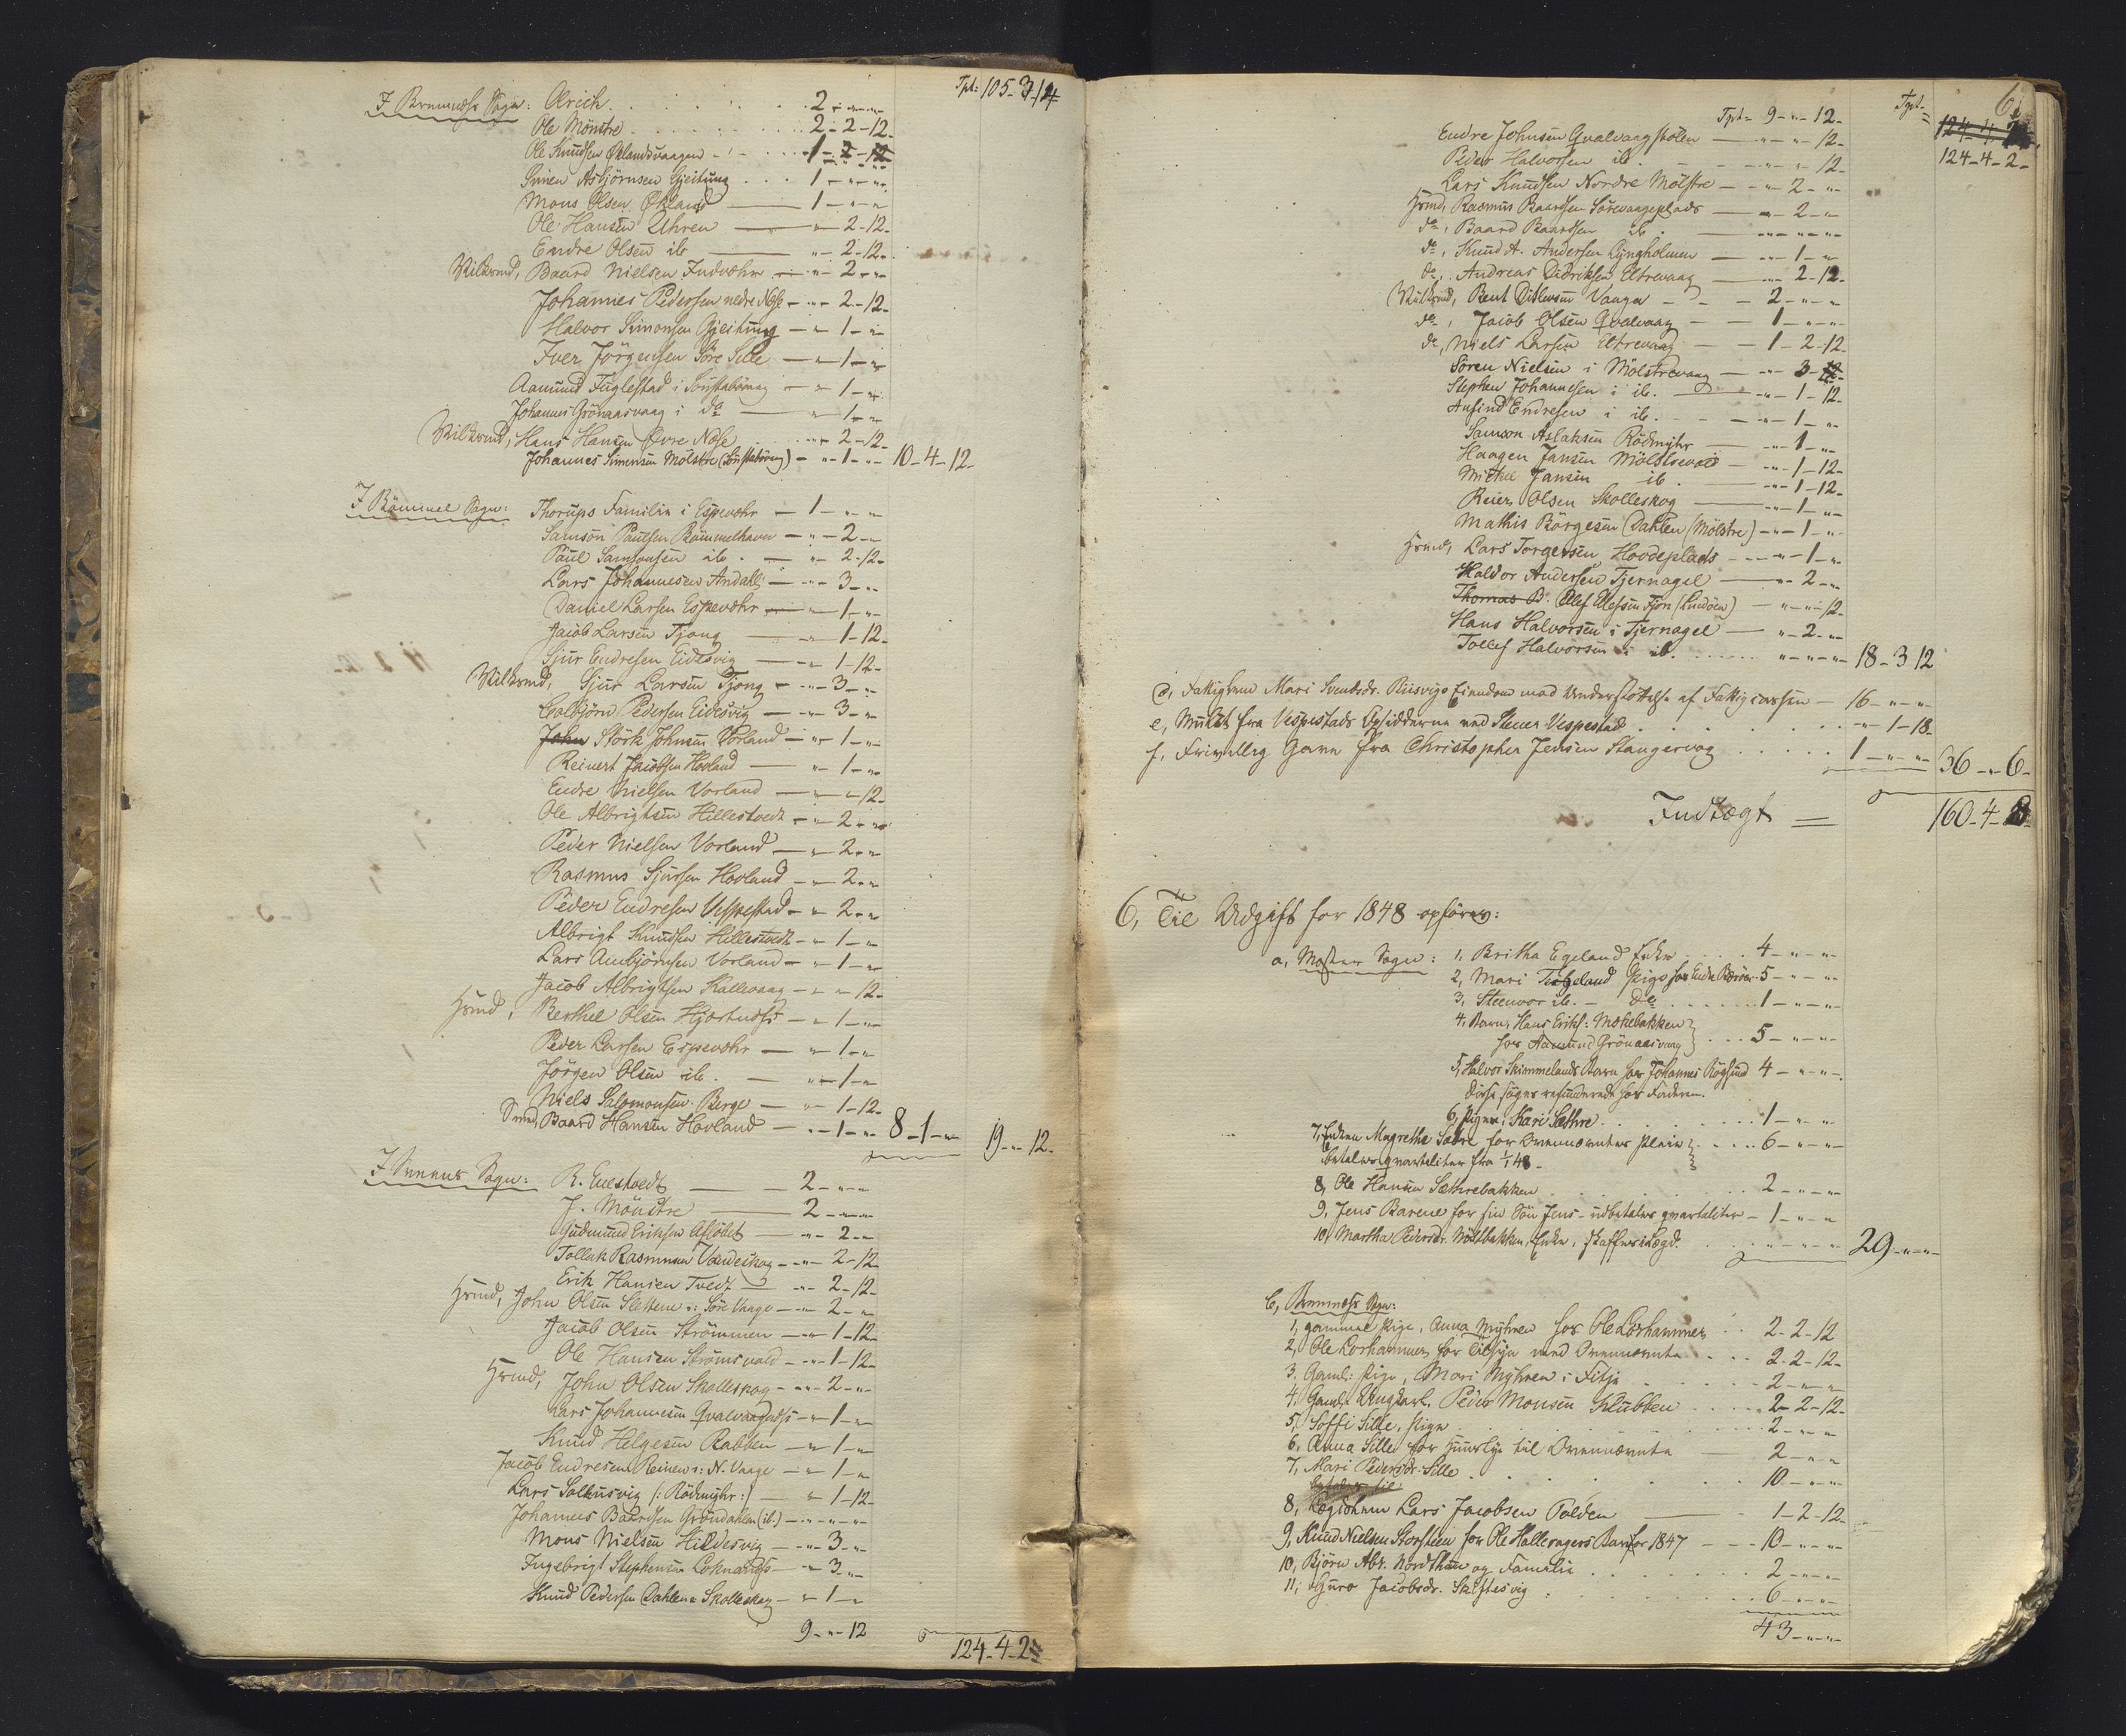 Tpt: 105-3-14
I Bremnæs Sogn: Olrich . . . . . 2 - " - "
Ole Mönstre . . . . . 2 - 2 - 12 -
Ole Knudsen Öklandsvaagen - 1 - 2 - 12
Simen Asbjörnsen Gjeitung . . . 1 - " - "
Mons OlsenÖkland — 1 - " - "
Ole Hansen Uhren — " - 2 - 12 -
Endre Olsen ib — " - 2 - 12 -
Baard Nielsen Indvæhr — " - 2 - "
Johannes Pedersen nedre Næse - " - 2 - 12 -
Halvor Simonsen Gjeitung — " - 1 - "
Iver Jörgensen Söre Lille — " - 1 - "
Aamund Fuglestad i — " - 1 - "
Johannes Grönaasvaag i do — " - 1 - "
Hans Hansen Övre Næse . . " - 2 - 12 -
Johannes Simensen Mölstre - " - 1 - " 10 - 4 - 12 -
I Bömmel Sogn: Thorups Familie i Espevær — 1 - " - "
Samson Paulsen Bömmelhavn — " - 2 - "
Paul Samsonsen ib. — " - 2 - 12 -
Lars Johannesen Andahl — " - 3 - "
Daniel Larsen Espevær — " - 1 - "
Jacob Larsen Tjong — " - 1 - 12 -
Sjur Endresen Eidesvig — " - 1 - 12 -
Sjur Larsen Tjong — " - 3 - "
Colbjörn Pedersen Eidesvig — " - 3 - "
John Störk Johnsen Vorland — " - 1 - "
Reinert Jacobsen Hovland — " - 1 - "
Endre Nielsen Vorland — " - " - 12 -
Ole Albrigtsen Hillestvedt — " - 2 - "
Peder Nielsen Vorland — " - 2 - "
Rasmus Sjursen Hovland — " - 2 - "
Peder Endresen Vespestad — " - 2 - "
Albrigt Knudsen Hillestvedt — " - 1 - "
Lars Ambjörnsen Vorland — " - 1 - "
Jacob Albrigtsen Kallevaag — " - " - 12 -
Hsmd, Berthel Olsen Hjortnæs — " - 1 - "
Peder Larsen Espevær — " - 1 - "
Jörgen Olsen ib. — " - 1 - "
Niels Salomonsen Berge — " - 1 - 12 -
Baard Hansen Hovland — " - 1 - " 8 - 1 - " 19 - " - 12 -
I Sveens Sogn: R. Euestvedt — 2 - " - "
J. Mönstre — 2 - " - "
Gudmund Eriksen — " - 2 - "
Tollak Rasmusen Vandeskog — " - 2 - 12
Erik Hansen Tvedt — " - 2 - 12 -
Hsmd, John Olsen Slettene : Söre Vaage — " - 2 - "
Jacob Olsen Strömmen — " - 1 - 12 -
Ole Hansen Strömsvold — " - 1 - 12 -
Hsmd, John Olsen Skolleskog — " - 2 - "
Lars Johannesen Qvalvaagnæs — " - 1 - "
Knud Helgesen Rabben — " - 1 - "
Jacob Endresen Reinen : N. Vaage — " - 1 - "
Lars Salhusvig (: Rödmyhr :) — " - 1 - 12 -
Johannes Baardsen Gröndahlen (ib.) — " - " - "
Mons Nielsen Hildesvig — " - 3 - "
Ingebrigt Stephensen Loknæs — " - 3 - "
Knud Pedersen Dahlen : Skolleskog — " - 1 - "
9 - " - 12
124 - 4 - 2
Tpt - 9 - " - 12 - Tpt - 124-4-2
Endre Johnsen Qvalvaagstölen — " - " - 12 - 124-4-2 -
Peder Halvorsen ib. — " - " - 12 -
Lars Knudsen Nordre Mölstre — " - 2 - "
Hsmd, Rasmus Baardsen Sörevaageplads — " - 2 - "
do, Baard Baardsen ib — " - " - "
do, Knud A. Andersen Lyngholmen — " - 1 - "
do, Andreas Didriksen Eltrevaag — " - 2 - 12 -
Bent Ditlevsen Vaage — 2 - " - "
do, Jacob Olsen Qvalvaag — 1 - " - "
do, Niels Larsen Eltrevaag — 1 - 2 - 12
Sören Nielsen i Mölstrevaag — " - 3 - "
Stephen Johannesen i ib. — " - 1 - 12 -
Anfind Endresen i ib. — " - 1 - "
Samson Aslaksen Rödmyhr — " - 1 - "
Haagen Jansen Mölstrevold — " - 1 - 12 -
Mickel Jansen ib. — " - 1 - 12 -
Reier Olsen Skolleskog — " - 1 - "
Mathis Börgesen Dahlen (Mölstre) — " - 1 - "
Hsmd, Lars Torgersen Hovdeplads — " - 1 - "
Haldor Andersen Tjernagel — " - 2 - "
Thomas B. Ellef Ellefsen Fjon (Lindöen) — " - " - 12 -
Hans Halvorsen i Tjernagel — " - 2 - "
Tollef Halvorsen i ib. . . . " - " - " 18 - 3 12
d, Fattiglem Mari Svendsdr. Riisvigs Eiendom mod Understöttelse af Fattigcassen — 16 - " - "
e, Mulct fra Vespestads Opsiddere ved Steuer Vespestad . . . " - 1 - 18 -
f, Frivillig Gave fra Christopher Jensen Stangervag . . . 1 - " - " 36 - " - 6 -
Indtægt = 160 - 4 - 8
6, Til Udgift for 1848 opföres:
a, Moster Sogn: 1, Britha Egeland Enke . . . 4 - " - "
2, Mari Tidgeland Pige hos Endre Bærö . 5 - " - "
3, Steenvor ib. - do . . . 1 - " - "
4, Barn, Hans Eriks: Mækebakken
hos Aamund Grönaasvaag . . . 5 - " - "
5, Halvor Skimmelands Barn hos Johannes Rögsund 4 - " - "
disse söges refunderede hos Faderen.
6, Pigen, Kari Sæthre . . . 1 - " - "
7, Enken Magrethe Sætre for Svennevæntes Pleie . . . 6 - " - "
betales qvartaliter fra 1/1 48 -
8, Ole Hansen Sæthrebakken . . . 2 - " - "
9, Jens Barene for sin Sön Jens - udbetales qvartaliter - 1 - " - "
10, Martha Pedersdr. Nöstbakken, Enke, skaffes i Lægd . . " - " - " 29 - " - "
b, Bremnæs Sogn:
1, gammel Pige, Anna Myhren hos Ole Lorhammer . . 2 - 2 - 12
2, Ole Lorhammer for Tilsyn med . . . 2 - 2 - 12 -
3, Gaml: Pige, Mari Myhren i Fitje . . . 2 - " - "
4, Gaml. Ungkarl, Peder Monsen Klubben . . . 2 - 2 - 12 -
5, Soffi Lille, Pige . . . 2 - " - "
6, Anna Lille for Huuslye til — 2 - " - "
7, Mari Pedersdr. Lille . . . 10 - " - "
8, Lægdslem Lars Jacobsen Tolden — 1 - 2 - 12 -
9, Knud Nielsen Storsteen for Ole Halleragers Barn for 1847 - - 10 - " - "
10, Björn Abr. Nordthun og Familie . . . 2 - " - "
11, Guro Jacobsdr. Skiftesvig . . . 6 - " - "
43 - " - "